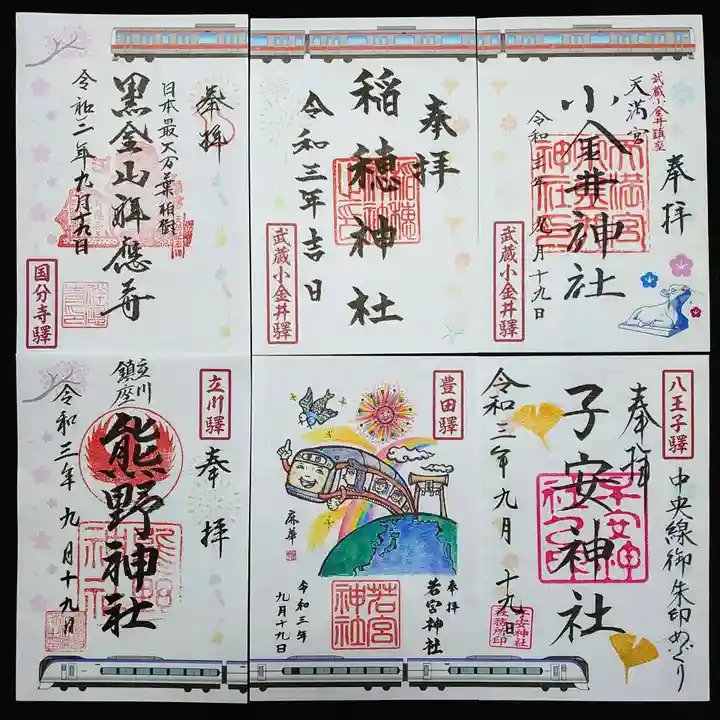 武蔵小金井鎮座
天満宮
奉拝
小金井神社
令和三年 九月十九日
武蔵小金井驛
奉拝
稲穂神社
稲穂
令和三年吉日
武蔵小金井驛
奉拝
日本最大万葉
黒金山祥應寺
令和三年九月十九日
国分寺驛
八王子驛
中央線御朱印めぐり
奉拝
子安神社
令和三年九月 十九日
子安神社
社務所印
豊田驛
麻華
奉拝
若宮神社
若宮
神社
令和三年
九月十九日
立川驛
奉拝
立川
鎮座
熊野神社
令和三年 九月十九日